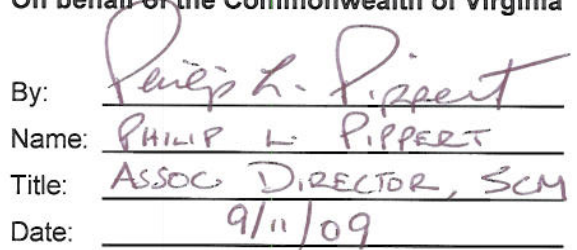 On behalf of the Commonwealth of Virginia
By: Philip L. Pippert
Name: PHILIP L. PIPPERT
Title: ASSOC. DIRECTOR, SCM
Date: 9/11/09